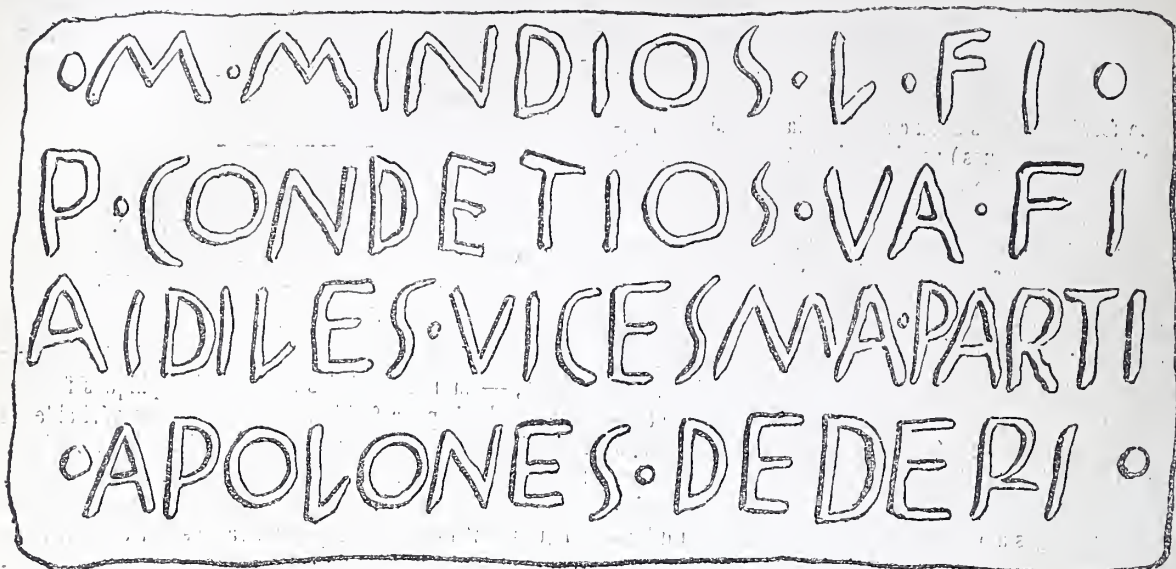 M·MINDIOS·L·FI
P·CONDETIOS·VA·FI
AIDILES·VICESMA·PARTI
APOLONES·DEDERI